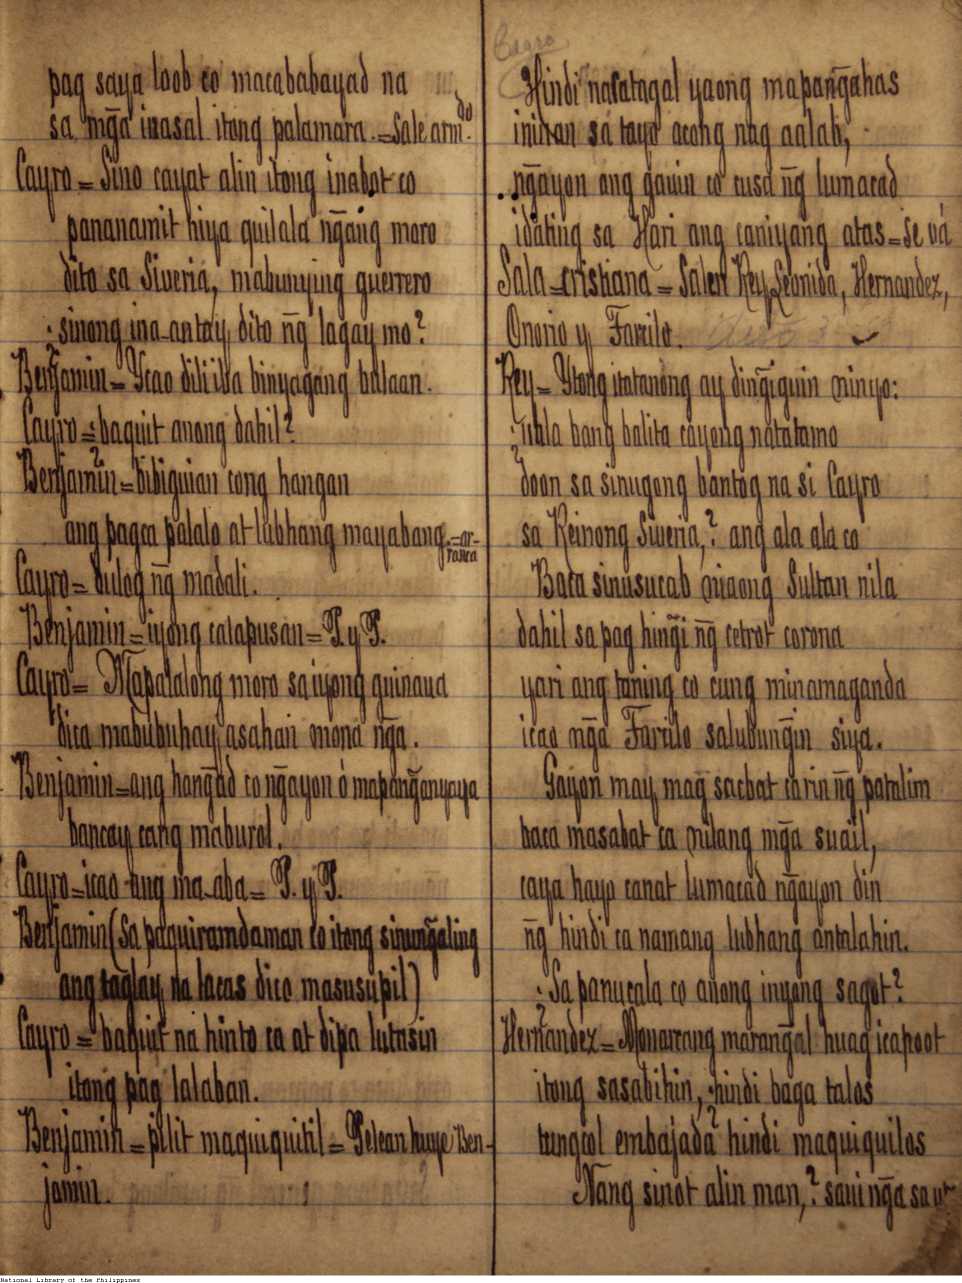 pag saya loob co macababayad na
sa mg̃a inasal itong palamara.=Sale arm.do
Cayro= Sino cayat alin itong inabot co
pananamit niya quilala ng̃ang moro
dito sa Siveria, mabunying guerrero
¿sinong ina-antay dito ng̃ lagay mo?
Benjamin= Ycao dili iba binyagang balaan.
Cayro=¿baquit anong dahil?
Benjamin=bibiguian cong hangan
ang pagca palalo at lubhang mayabang.=ar-
ranca
Cayro= dulog ng̃ madali.
Benjamin=iyong catapusan=P. y P.
Cayro= Mapalalong moro sa iyong guinaua
dica mabubuhay asahan mona ng̃a.
Benjamin=ang hang̃ad co ng̃ayon ó mapang̃anyaya
bancay cang maburol.
Cayro=icao ang ma-aba= P. y P.
Benjamin(Sa paquiramdaman co itong sinung̃aling
ang taglay na lacas dico masusupil)
Cayro= baquit na hinto ca at dipa lutasin
itong pag lalaban.
Benjamin=pilit maquiquitil=Pelean huye Ben-
jamin.
Cayro
Hindi nacatagal yaong mapang̃ahas
iniuan sa tayo acong nag aalab,
ng̃ayon ang gauin co cusa ng̃ lumacad
idating sa Hari ang caniyang atas=Se vá
Sala=cristiana=Salen Rey Leonida, Hernandez,
Onorio y Farcilo.
Rey= Ytong itatanong ay ding̃iguin ninyo:
¿uala bang balita cayong natatamo
doon sa sinugong bantog na si Cayro
sa Reinong Siveria,? ang ala ala co
Baca sinusucab niaong Sultan nila
dahil sa pag hing̃i ng̃ cetrot corona
yari ang toning co cung minamaganda
icao ng̃a Farcilo salubung̃in siya.
Gayon may mag sacbat carin ng̃ patalim
baca masabat ca nilang mg̃a suail,
caya hayo canat lumacad ng̃ayon din
ng̃ hindi ca namang lubhang antalahin.
¿Sa panucala co anong inyong sagot?
Hernandez=Monarcang marang̃al huag icapoot
itong sasabihin, ¿hindi baga talos
tungcol embajada hindi maquiquilos
Nang sinot alin man,? saui ng̃a sa ut-